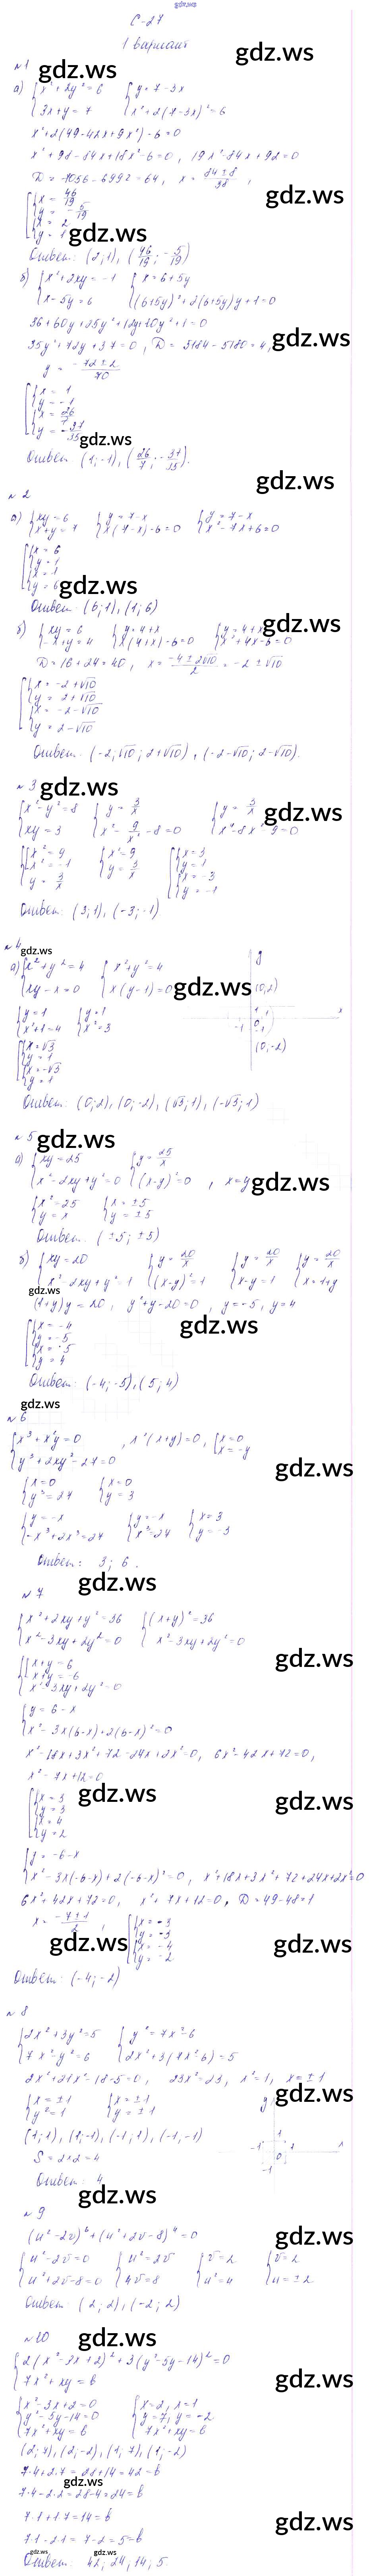 gdz.ws
С-27
1 вариант
gdz.ws
№1
gdz.ws
а) { x²+2y²=6 { y=7-3x
3x+y=7 x²+2(7-3x)²=6
x²+2(49-42x+9x²)-6=0
x²+98-84x+18x²-6=0, 19x²-84x+92=0
D=7056-6992=64, x=(84±8)/38,
gdz.ws
x=46/19
y=-5/19
x=2
y=1
gdz.ws
Ответ: (2;1), (46/19; -5/19)
б) { x²+2xy=-1 { x=6+5y
x-5y=6 (6+5y)²+2(6+5y)y+1=0
36+60y+25y²+12y+10y²+1=0
gdz.ws
35y²+72y+37=0, D=5184-5180=4,
y=(-72±2)/70
x=1
y=-1
x=26/7
y=-37/35
gdz.ws
Ответ: (1;-1), (26/7; -37/35).
gdz.ws
№2
а) { xy=6 { y=7-x { y=7-x
x+y=7 x(7-x)-6=0 x²-7x+6=0
x=6
y=1
x=1
y=6
gdz.ws
Ответ: (6;1), (1;6)
gdz.ws
б) { xy=6 { y=4+x { y=4+x
-x+y=4 x(4+x)-6=0 x²+4x-6=0
D=16+24=40, x=(-4±2√10)/2=-2±√10
x=-2+√10
y=2+√10
x=-2-√10
y=2-√10
Ответ: (-2+√10; 2+√10), (-2-√10; 2-√10).
№3
gdz.ws
{ x²-y²=8 { y=3/x { y=3/x
xy=3 x²-9/x²-8=0 x⁴-8x²-9=0
gdz.ws
x²=9 x²=9 x=3
x²=-1 y=3/x y=1
y=3/x x=-3
y=-1
Ответ: (3;1), (-3;-1)
№4
gdz.ws
а) { x²+y²=4 { x²+y²=4
xy-x=0 x(y-1)=0
gdz.ws
y
(0,2)
x
-1 0 1
-1
(0,-2)
y=1 y=1
x²+1=4 x²=3
x=√3
y=1
x=-√3
y=1
Ответ: (0;2), (0;-2), (√3;1), (-√3;1)
№5
gdz.ws
а) { xy=25 { y=25/x
x²-2xy+y²=0 (x-y)²=0, x=y
gdz.ws
x²=25 x=±5
y=x y=±5
Ответ: (±5; ±5)
б) { xy=20 { y=20/x { y=20/x { y=20/x
x²-2xy+y²=1 (x-y)²=1 x-y=1 x=1+y
gdz.ws
(1+y)y=20, y²+y-20=0, y=-5, y=4
gdz.ws
x=-4
y=-5
x=5
y=4
Ответ: (-4;-5), (5;4)
gdz.ws
№6
{ x³+x²y=0, x²(x+y)=0, x=0
y³+2xy²-27=0 x=-y
gdz.ws
x=0 x=0
y³=27 y=3
y=-x y=-x x=3
-x³+2x³=27 x³=27 y=-3
Ответ: 3; 6.
gdz.ws
№7
{ x²+2xy+y²=36 { (x+y)²=36
x²-3xy+2y²=0 x²-3xy+2y²=0
gdz.ws
x+y=6
x+y=-6
x²-3xy+2y²=0
y=6-x
x²-3x(6-x)+2(6-x)²=0
x²-18x+3x²+72-24x+2x²=0, 6x²-42x+72=0,
x²-7x+12=0
gdz.ws
gdz.ws
x=3
y=3
x=4
y=2
y=-6-x
x²-3x(-6-x)+2(-6-x)²=0, x²+18x+3x²+72+24x+2x²=0
6x²+42x+72=0, x²+7x+12=0, D=49-48=1
x=(-7±1)/2,
x=-3
y=-3
x=-4
y=-2
gdz.ws
gdz.ws
Ответ: (-4;-2)
№8
{ 2x²+3y²=5 { y²=7x²-6
7x²-y²=6 2x²+3(7x²-6)=5
2x²+21x²-18-5=0, 23x²=23, x²=1, x=±1
gdz.ws
x=±1 x=±1
y²=1 y=±1
y
1
-1 0 1 x
-1
(1;1), (1;-1), (-1;1), (-1;-1)
S=2×2=4
Ответ: 4
gdz.ws
№9
gdz.ws
(u²-2v)⁶+(u²+2v-8)⁴=0
{ u²-2v=0 { u²=2v { v=2 { v=2
u²+2v-8=0 4v=8 u²=4 u=±2
Ответ: (2;2), (-2;2)
№10
gdz.ws
{ 2(x²-3x+2)²+3(y²-5y-14)²=0
7x²+xy=b
gdz.ws
x²-3x+2=0 x=2, x=1
y²-5y-14=0 y=7, y=-2
7x²+xy=b 7x²+xy=b
(2;7), (2;-2), (1;7), (1;-2)
7·4+2·7=28+14=42=b
gdz.ws
7·4-2·2=28-4=24=b
gdz.ws
7·1+1·7=14=b
7·1-2·1=7-2=5=b
gdz.ws gdz.ws
Ответ: 42; 24; 14; 5.